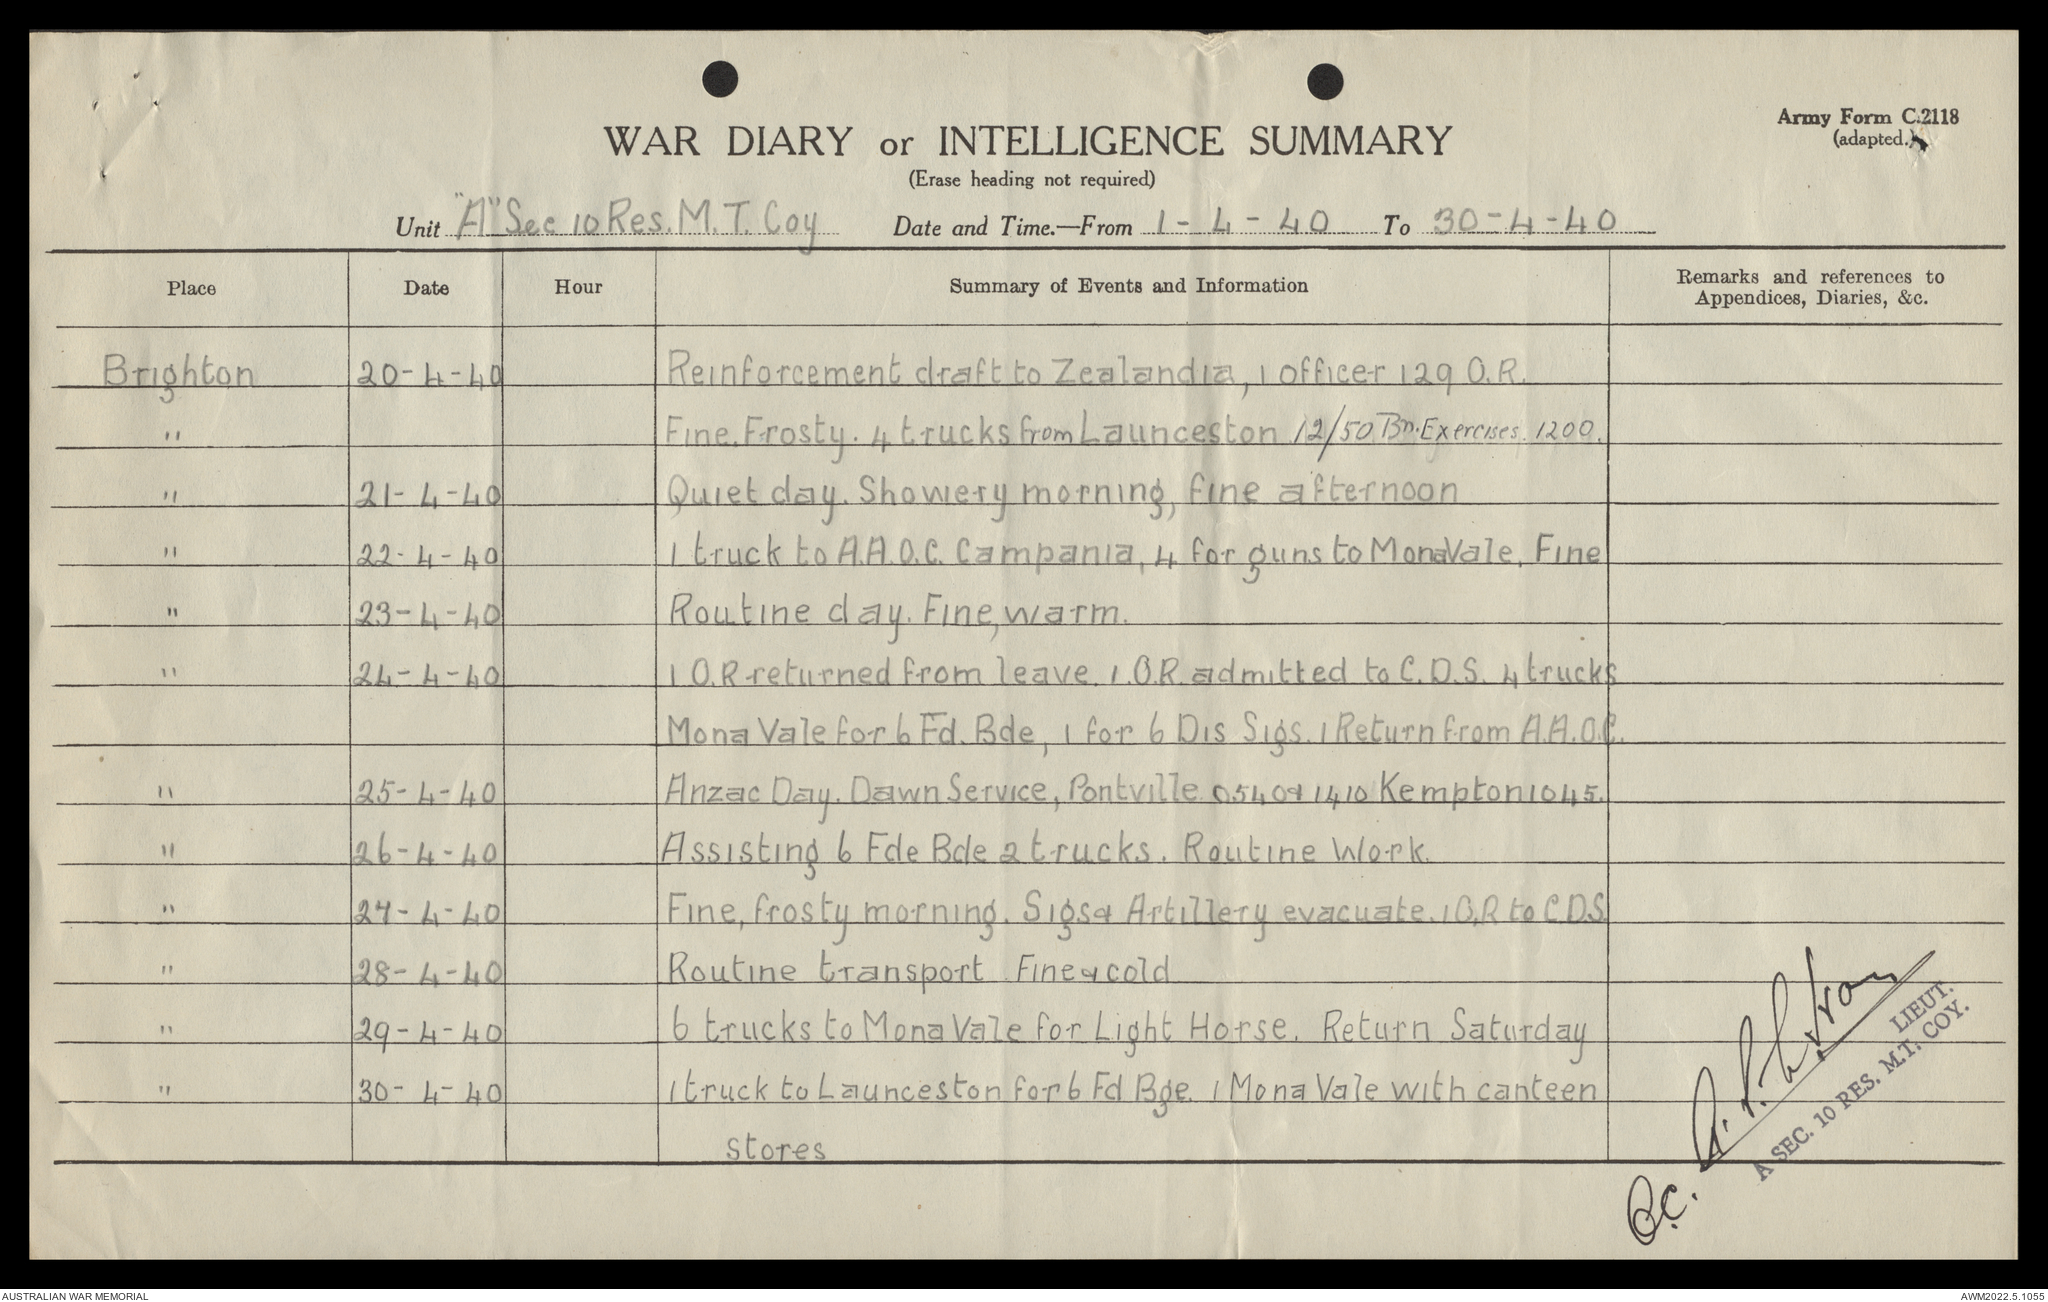 Army Form C.2118
(adapted.)
WAR DIARY or INTELLIGENCE SUMMARY
(Erase heading not required)
Unit "A" Sec 10 Res. M. T. Coy Date and Time.—From 1-4-40 To 30-4-40
Place Date Hour Summary of Events and Information Remarks and references to Appendices, Diaries, &c.
Brighton 20-4-40 Reinforcement draft to Zealandia, 1 officer 129 O.R.
" Fine. Frosty. 4 trucks from Launceston 12/50 Bn. Exercises. 1200.
" 21-4-40 Quiet day. Showery morning, fine afternoon
" 22-4-40 1 truck to A.A.O.C. Campania, 4 for guns to MonaVale. Fine
" 23-4-40 Routine day. Fine, warm.
" 24-4-40 1 O.R returned from leave. 1.O.R. admitted to C.D.S. 4 trucks
Mona Vale for 6 Fd. Bde, 1 for 6 Dis Sigs. 1 Return from A.A.O.C.
" 25-4-40 Anzac Day. Dawn Service, Pontville 0540 & 1410 Kempton 1045.
" 26-4-40 Assisting 6 Fde Bde 2 trucks. Routine Work.
" 27-4-40 Fine, frosty morning. Sigs & Artillery evacuate. 1 O,R to C.D.S.
" 28-4-40 Routine transport. Fine & cold
" 29-4-40 6 trucks to Mona Vale for Light Horse. Return Saturday
" 30-4-40 1 truck to Launceston for 6 Fd Bge. 1 Mona Vale with canteen
stores
LIEUT.
O.C. A SEC. 10 RES. M.T. COY.
AUSTRALIAN WAR MEMORIAL AWM2022.5.1055